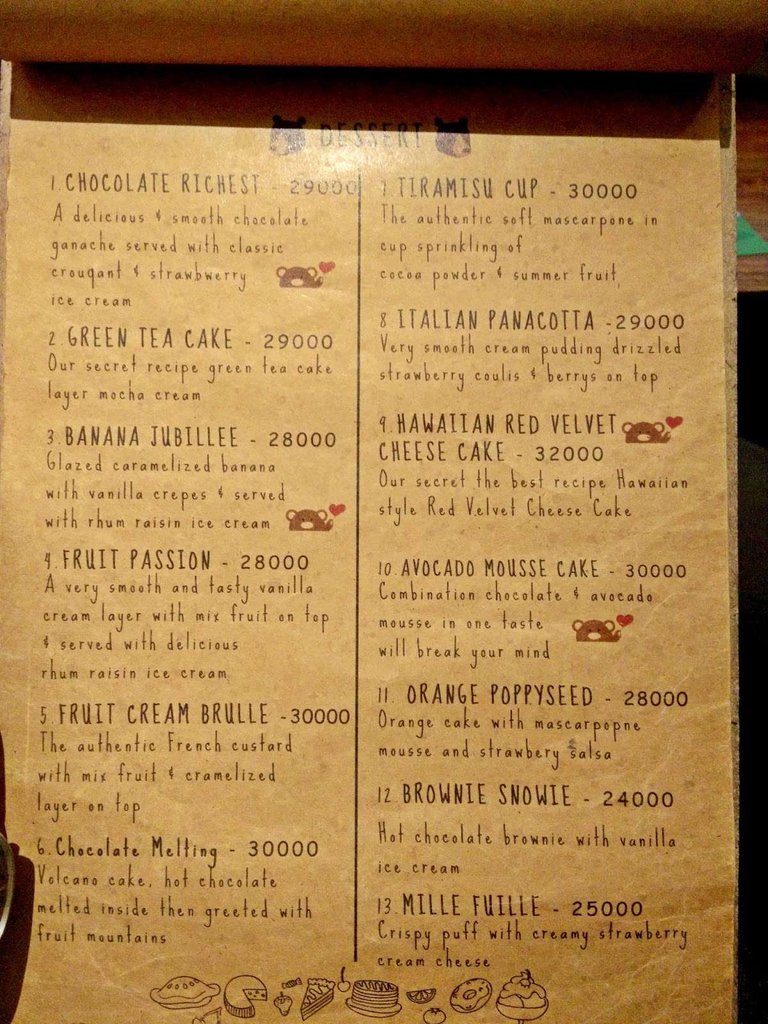 DESSERT
1. CHOCOLATE RICHEST - 29000
A delicious & smooth chocolate
ganache served with classic
crouqant & strawbwerry
ice cream
2. GREEN TEA CAKE - 29000
Our secret recipe green tea cake
layer mocha cream
3. BANANA JUBILLEE - 28000
Glazed caramelized banana
with vanilla crepes & served
with rhum raisin ice cream
4. FRUIT PASSION - 28000
A very smooth and tasty vanilla
cream layer with mix fruit on top
& served with delicious
rhum raisin ice cream
5. FRUIT CREAM BRULLE -30000
The authentic French custard
with mix fruit & cramelized
layer on top
6. Chocolate Melting - 30000
Volcano cake, hot chocolate
melted inside then greeted with
fruit mountains
7. TIRAMISU CUP - 30000
The authentic soft mascarpone in
cup sprinkling of
cocoa powder & summer fruit,
8 ITALIAN PANACOTTA -29000
Very smooth cream pudding drizzled
strawberry coulis & berrys on top
9. HAWAIIAN RED VELVET
CHEESE CAKE - 32000
Our secret the best recipe Hawaiian
style Red Velvet Cheese Cake
10. AVOCADO MOUSSE CAKE - 30000
Combination chocolate & avocado
mousse in one taste
will break your mind
11. ORANGE POPPYSEED - 28000
Orange cake with mascarpopne
mousse and strawbery salsa
12. BROWNIE SNOWIE - 24000
Hot chocolate brownie with vanilla
ice cream
13. MILLE FUILLE - 25000
Crispy puff with creamy strawberry
cream cheese